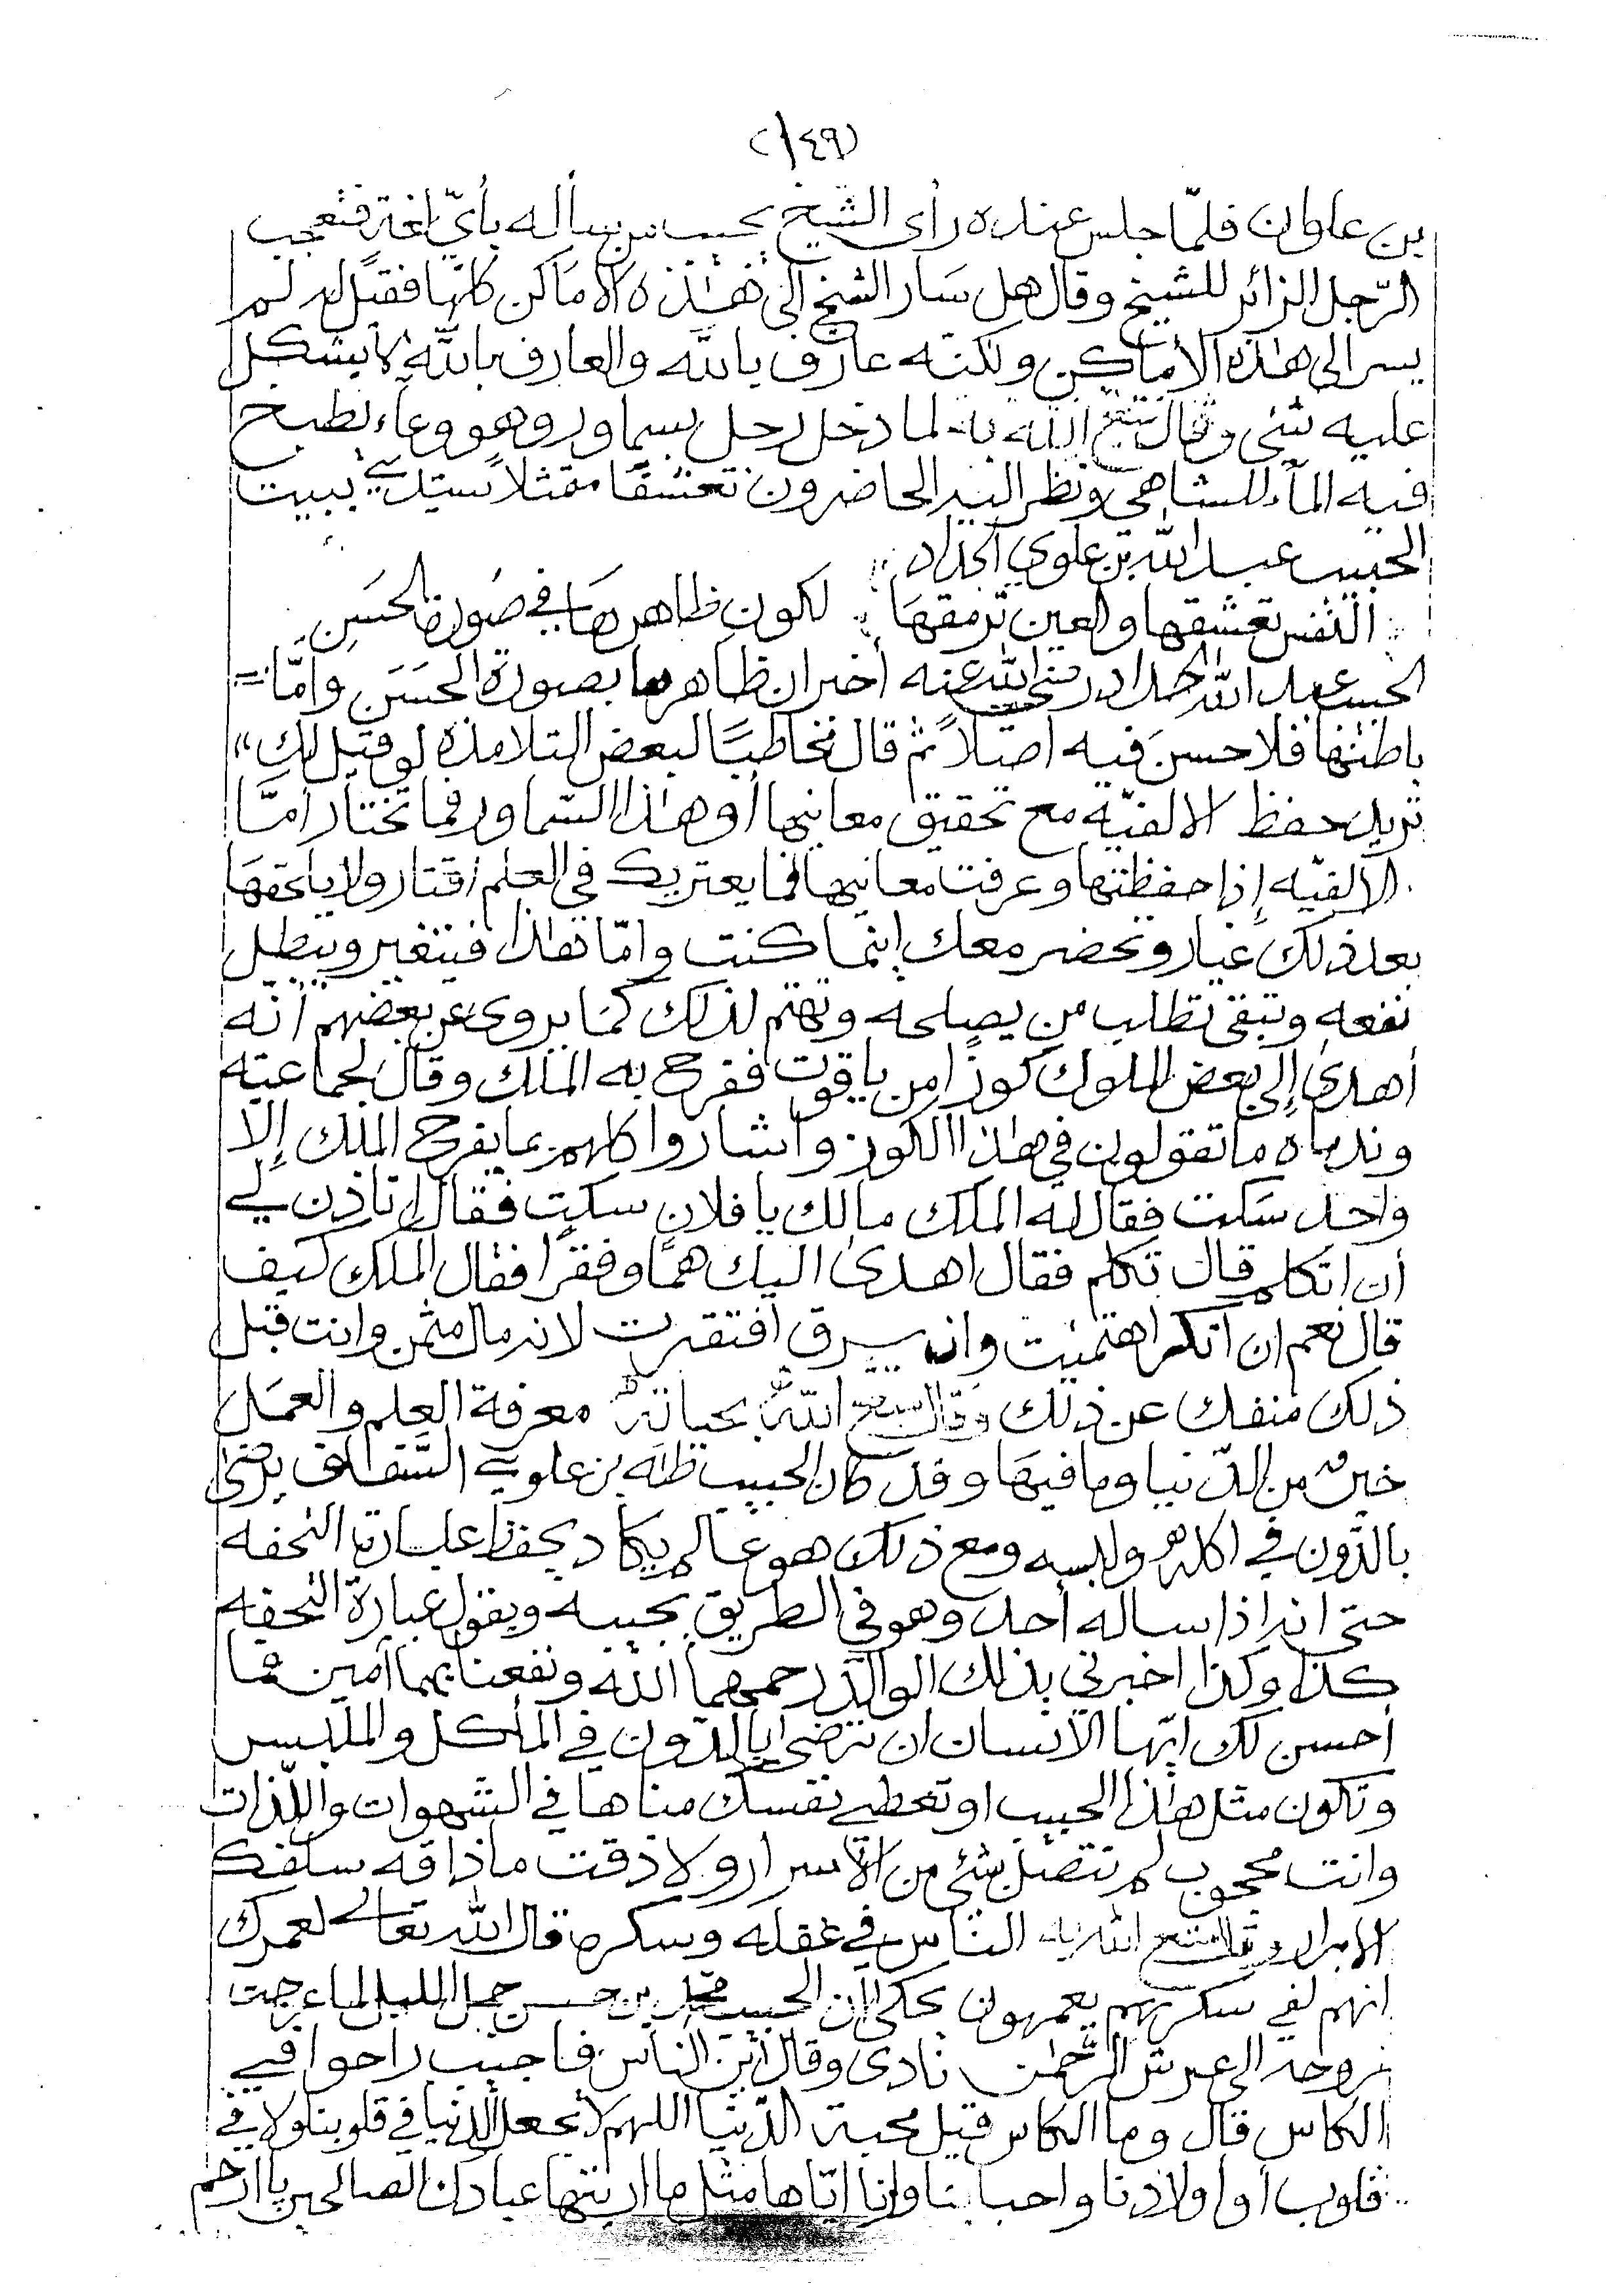 (١٤٩)
بن علوان فلمّا جلس عنده رأى الشيخ يجيب من يسأله بأيّ لغة فتعجب
الرّجل الزائر للشيخ وقال هل سَار الشيخ الى هٰذه الأمَاكن كلّها فقيل له لم
يسر الى هٰذه الأماكن ولكنّه عارف بالله والعارف بالله لا يشكل
عليه شئ وقال متّع الله به لما دخل رجل بسماور وهو وعاء يطبخ
فيه المآء للشاهي ونظر اليه الحاضرون تعشقًا متمثلاً سيدي ببيت
الحبيب عبد الله بن علوي الحداد
النّفس تعشقها والعين ترمقهَا لكون ظاهرهَا في صُورة الحسَنِ
الحبيب عبد الله الحداد رضي الله عنه أخبر ان ظاهرها بصورة الحسَن وامّا
باطنها فلا حسن فيه اصلاً ثم قال مخاطبًا لبعض التلامذه لو قيل لك
تريد حفظ الالفيّه مع تحقيق معانيها أو هٰذا السّماور فما تختار امّا
الالفيّه إذا حفظتها وعرفت معانيها فما يعتريك في العلم اقتار ولا يلحقهَا
بعد ذلك غبار وتحضر معك اينما كنت وامّا هٰذا فيتغير ويبطل
نفعه وتبقى تطلب من يصلحه وتهتم لذلك كمَا يروى عن بعضهم أنّه
أهدى إلى بعض الملوك كوزًا من ياقوت ففرح به الملك وقال لجماعته
وندماه ما تقولون في هٰذا الكوز وأشاروا كلهم بما يفرح الملك إلّا
واحد سَكت فقال له الملك مالك يا فلان سكت فقال اتاذن لي
أن اتكلم قال تكلم فقال اهدى اليك همًّا وفقرًا فقال الملك كيف
قال نعم ان انكسر اهتميت وان سرق افتقرت لانه مال مثمن وانت قبل
ذلك منفك عن ذلك وقال متع الله بحياته معرفة العِلم والعمَل
خيرٌ من الدّنيا وما فيهَا وقد كان الحبيب طٰه بن علوي السَّقاف يرضى
بالدّون في اكله ولبسه ومع ذلك هو عالم يكاد يحفظ عبارة التحفه
حتى انه اذا ساله أحد وهو في الطريق يجيبه ويقول عبارة التحفه
كذا وكذا اخبرني بذلك الوالد رحمهما الله ونفعنا بهما آمين فما
أحسن لك ايّها الانسان ان ترضى بالدّون في المأكل والملبس
وتكون مثل هٰذا الحبيب او تعطي نفسك مناها في الشهوات واللّذات
وانت محجوب لم تتصل بشئ من الأسرار ولا ذقت ما ذاقه سلفك
الابرار وقال متع الله به الناس في غفله وسكره قال الله تعالى لعمرك
انهم لفي سكرتهم يعمهون يحكى ان الحبيب محمد بن حسن جمل الليل لما عرجت
روحه الى عرش الرّحمٰن نادى وقال أين الناس فأجيب راحوا في
الكاس قال وما الكاس قيل محبة الدّنيا اللهم لا تجعل الدنيا في قلوبنا ولا في
قلوب أولادنا واحبابنا وارنا ايّاها مثل ما اريتها عبادك الصالحين يا ارحم